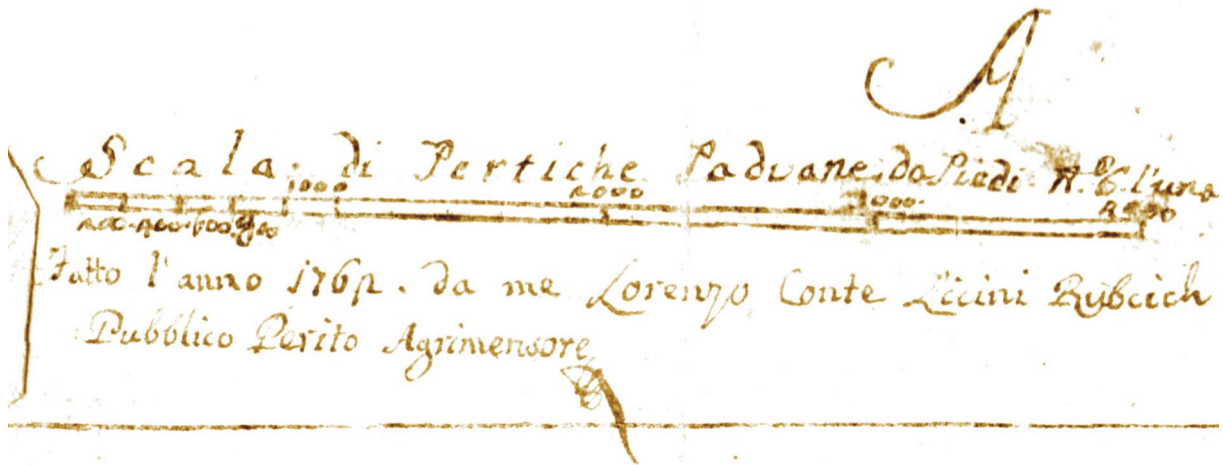 A
Scala di Pertiche Paduane da Piedi N.º 6 l'una
1000 2000 3000 4000
200 400 600 800
Fatto l'anno 1762. da me Lorenzo Conte Licini Rubcich
Pubblico Perito Agrimensore